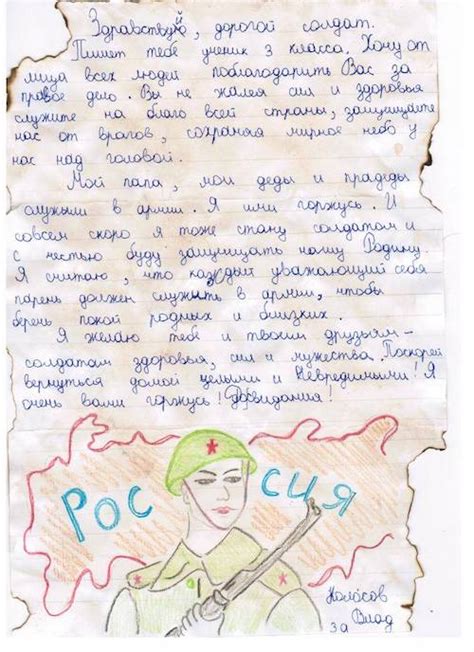 Здравствуй, дорогой солдат.
Пишет тебе ученик 3 класса. Хочу от
лица всех людей поблагодарить Вас за
правое дело. Вы не жалея сил и здоровья
служите на благо всей страны, защищаете
нас от врагов, сохраняя мирное небо у
нас над головой.
Мой папа, мои деды и прадеды
служили в армии. Я ими горжусь. И
совсем скоро я тоже стану солдатом и
с честью буду защищать нашу Родину.
Я считаю, что каждый уважающий себя
парень должен служить в армии, чтобы
беречь покой родных и близких.
Я желаю тебе и твоим друзьям-
солдатам здоровья, сил и мужества. Поскорей
вернуться домой целыми и невредимыми! Я
очень вами горжусь! Досвидания!
РОССИЯ
Колосов
Влад
3а